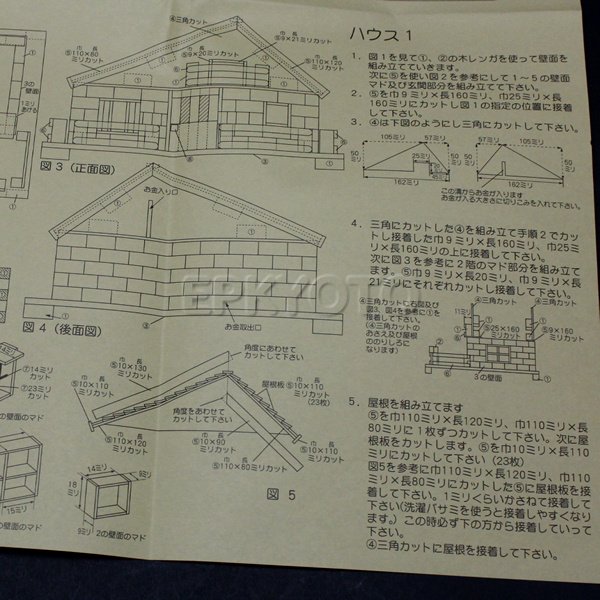 ハウス1
1. 図1を見て①、②の木レンガを使って壁面を
組み立てていきます。
次に⑤を使い図2を参考にして1〜5の壁面
マド及び玄関部分を組み立てて下さい。
2. ⑤を巾9ミリ×長160ミリ、巾25ミリ×長
160ミリにカットし図1の指定の位置に接着
して下さい。
3. ④は下図のようにし三角にカットして下さい。
105ミリ 57ミリ
57ミリ 105ミリ
50ミリ
25ミリ
50ミリ
50ミリ
45ミリ
162ミリ
162ミリ
この溝からお金が入ります
お金が入る大きさに切りこみを入れて下さい。
4. 三角にカットした④を組み立て手順2でカッ
トし接着した巾9ミリ×長160ミリ、巾25ミ
リ×長160ミリの上に接着して下さい。
次に図3を参考に2階のマド部分を組み立て
ます。⑤巾9ミリ×長20ミリ、巾9ミリ×長
21ミリにそれぞれカットし接着して下さい。
④三角カットに右図及び
図3、図4を参考に①を
接着して下さい。
(④三角カットの
おさえ及び屋根
ののりしろに
なります)
④三角カット
④三角カット
11ミリ
①
①
巾 長
⑤25×160
ミリカット
巾 長
⑤9×160
ミリカット
3の壁面
⑥
⑥
5. 屋根を組み立てます
⑤を巾110ミリ×長120ミリ、巾110ミリ×長
80ミリに1枚ずつカットして下さい。次に屋
根板をカットします。⑤を巾10ミリ×長110
ミリにカットして下さい(23枚)
図5を参考に巾110ミリ×長120ミリ、巾110ミ
リ×長80ミリにカットした⑤に屋根板を接
着して下さい。1ミリくらいかさねて接着し
て下さい(洗濯バサミを使うと接着しやすくなり
ます。)この時必ず下の方から接着していって
下さい。
④三角カットに屋根を接着して下さい。
④三角カット
巾 長
⑤110×80
ミリカット
巾 長
⑤9×20ミリカット
巾 長
⑤9×21ミリカット
巾 長
⑤110×120
ミリカット
図3(正面図)
お金入り口
お金取出口
図4(後面図)
EPKYOTO
角度にあわせて
カットして下さい
巾 長
⑤10×110
ミリカット
巾 長
⑤10×130
ミリカット
屋根板
巾 長
⑤10×110
ミリカット
(23枚)
角度をあわせて
カットして下さい
巾 長
⑤110×120
ミリカット
巾 長
⑤10×90
ミリカット
巾 長
⑤110×80ミリカット
巾 長
⑤10×110
ミリカット
図 5
3の
壁面
1ミリ
あける
⑦14ミリ
カット
⑦23ミリ
カット
の壁面のマド
15ミリ
の壁面のマド
14ミリ
9ミリ
18
ミリ
9ミリ
2の壁面のマド